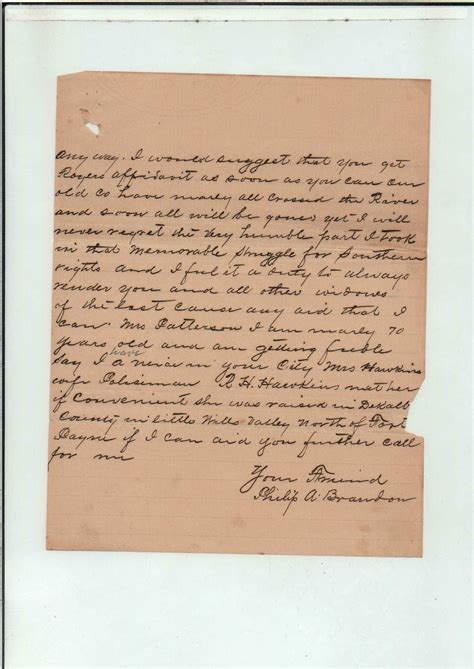 any way. I would suggest that you get
Rogers affidavit as soon as you can our
old Co have nearly all crossed the River
and soon all will be gone yet I will
never regret the very humble part I took
in that memorable struggle for Southern
rights and I feel it a duty to always
render you and all other widows
of the lost cause any aid that I
can Mrs Patterson I am nearly 70
years old and am getting feeble
have
say I a niece in your City Mrs Hawkins
wife Policeman R. H. Hawkins
if convenient she was raised in Dekalb
County in little Wills Valley North of Fort
Payne if I can aid you further call
for me
Your Friend
Philip A. Brandon